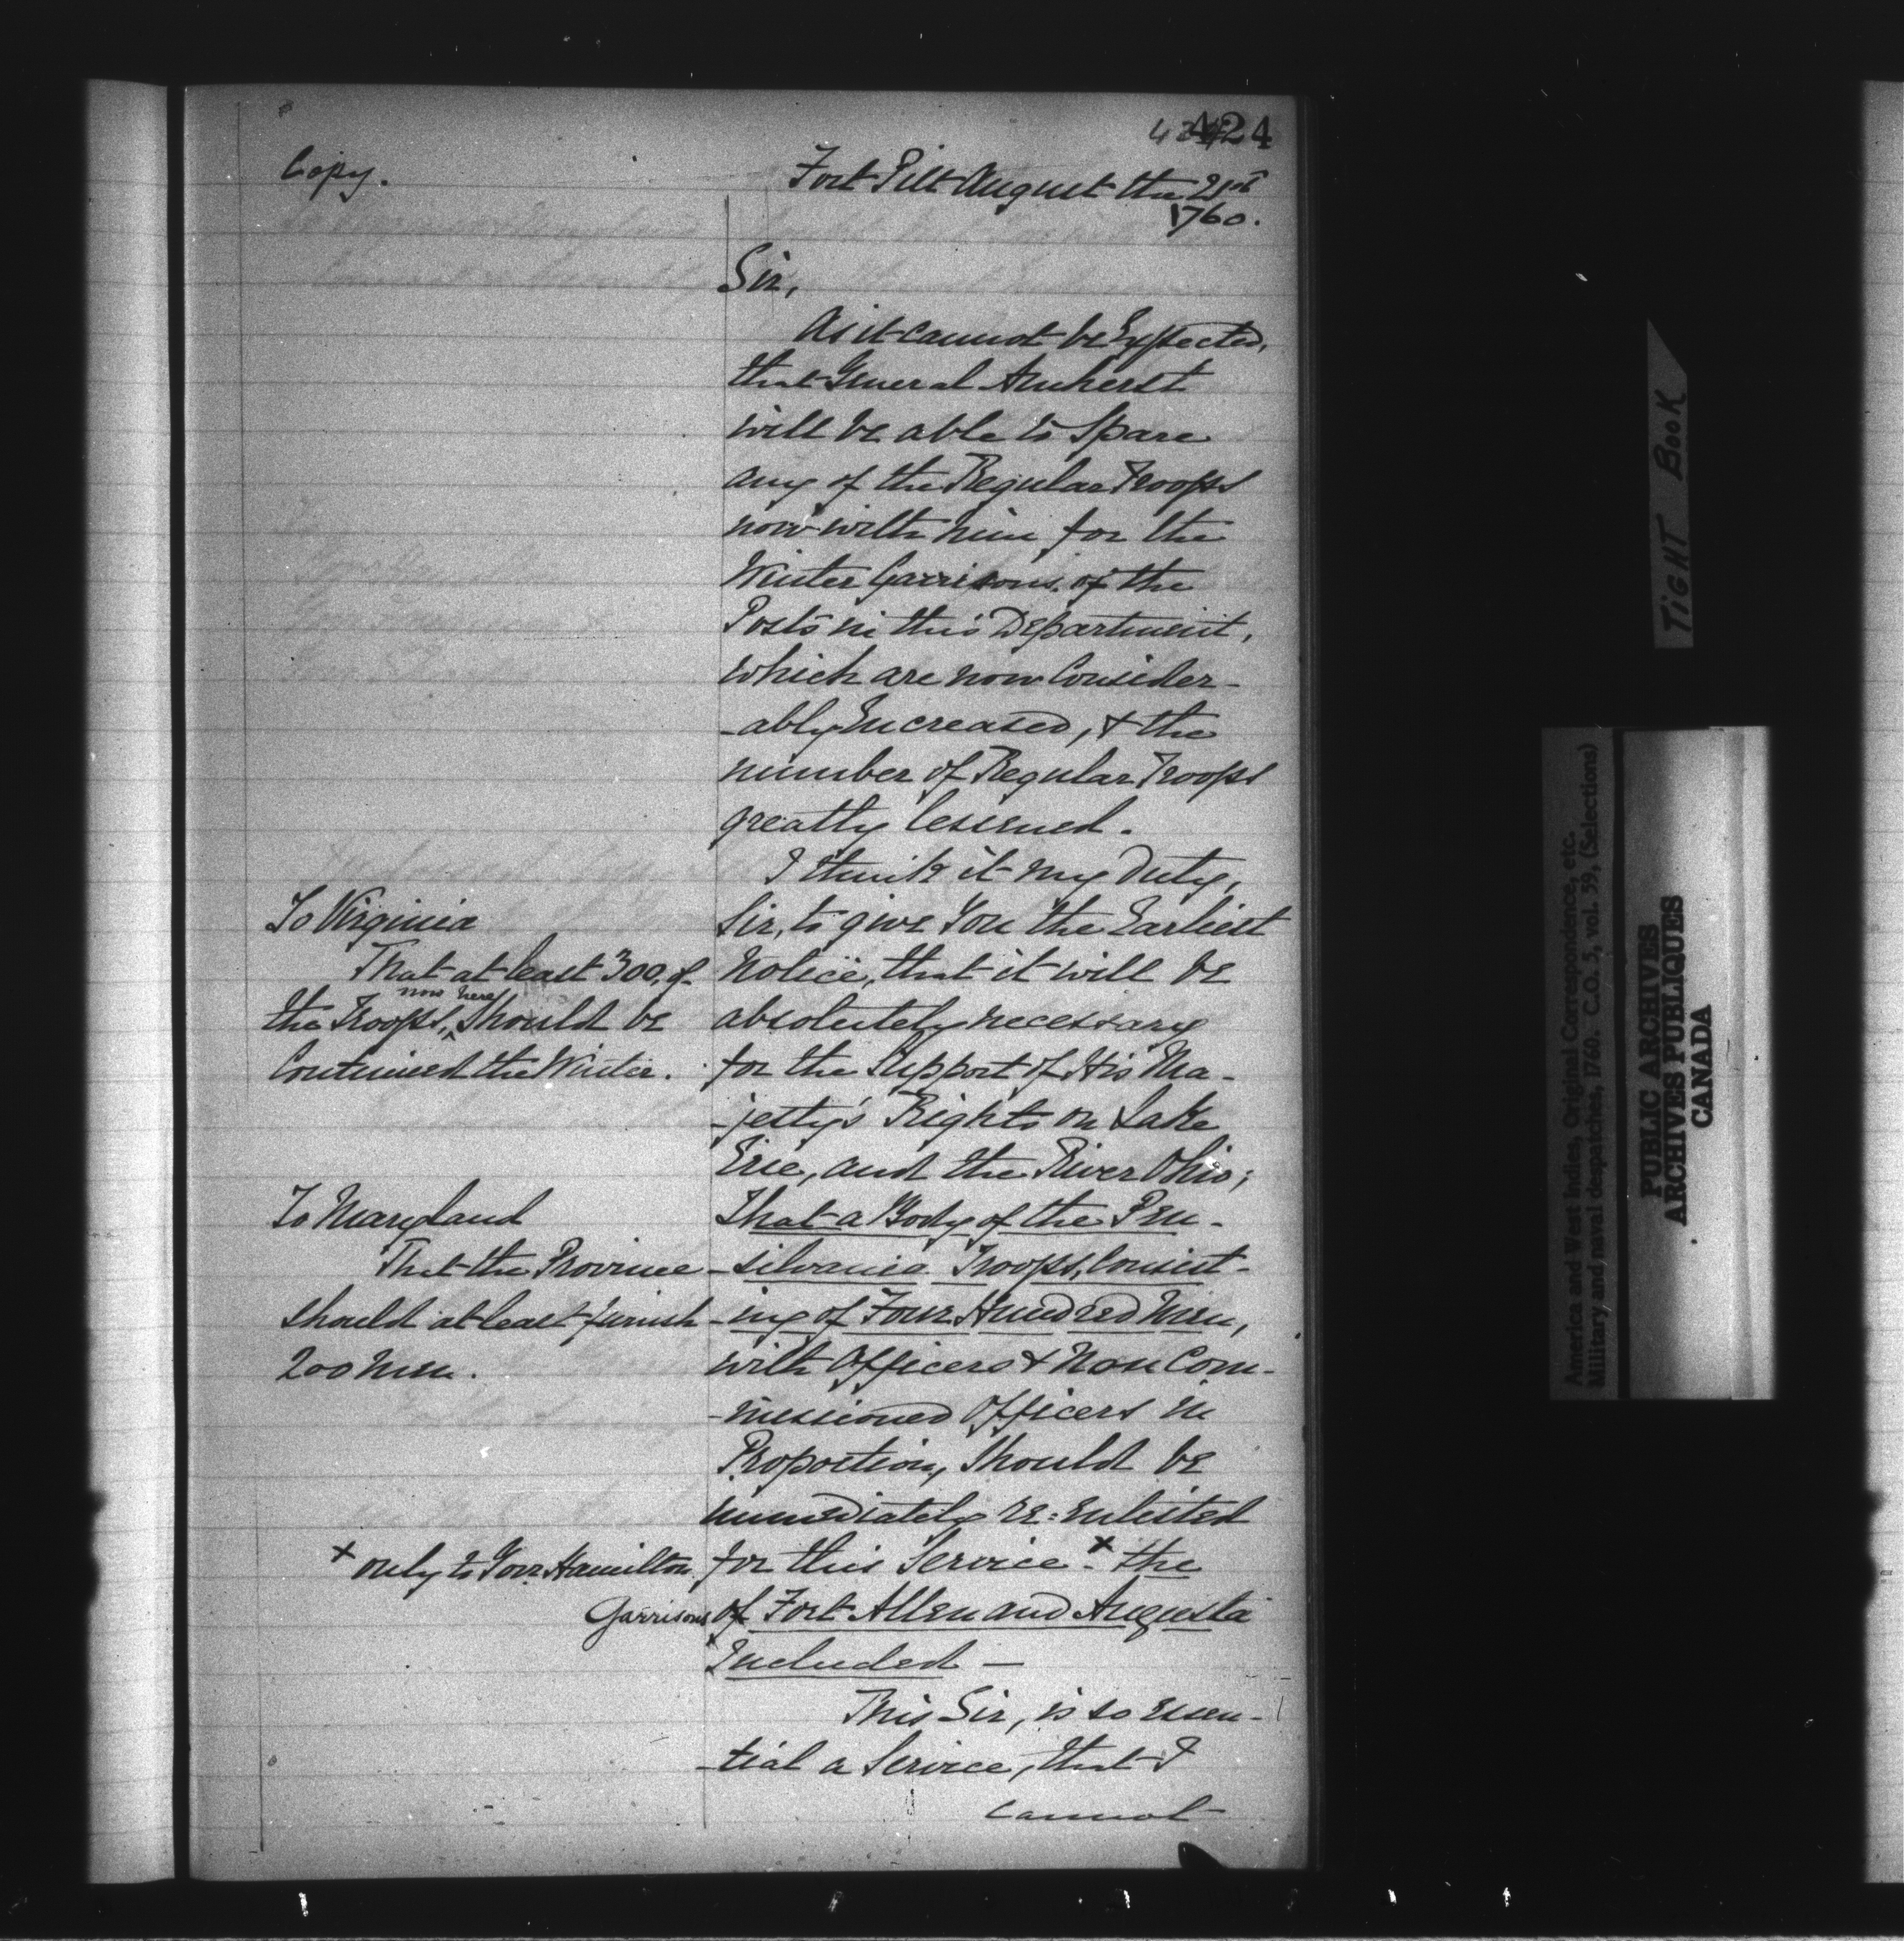 424
Copy.
Fort Pitt August the 21st
1760.
Sir,
As it cannot be Expected,
that General Amherst
will be able to Spare
any of the Regular Troops
now with him for the
Winter Garrisons of the
Posts in this Department,
which are now Consider-
-ably Increased, & the
number of Regular Troops
greatly lessened.
I think it my Duty,
Sir, to give You the Earliest
Notice, that it will be
absolutely necessary
for the Support of His Ma-
-jesty's Rights on Lake
Erie, and the River Ohio;
That a Body of the Pen-
-silvania Troops, Consist-
-ing of Four Hundred Men,
with Officers & Non Com-
-missioned Officers in
Proportion, should be
immediately re=enlisted
for this Service. x the
Garrisons of Fort Allen and Augusta
Included —
This Sir, is so Essen-
-tial a Service, that I
cannot
To Virginia
That at least 300, of
the Troops, now here, should be
Continued the Winter.
To Maryland
That the Province
should at least furnish
200 Men.
x only to Govr. Hamilton
TIGHT BOOK
America and West Indies, Original Correspondence, etc.
Military and naval despatches, 1760. C.O. 5, vol. 59, (Selections)
PUBLIC ARCHIVES
ARCHIVES PUBLIQUES
CANADA